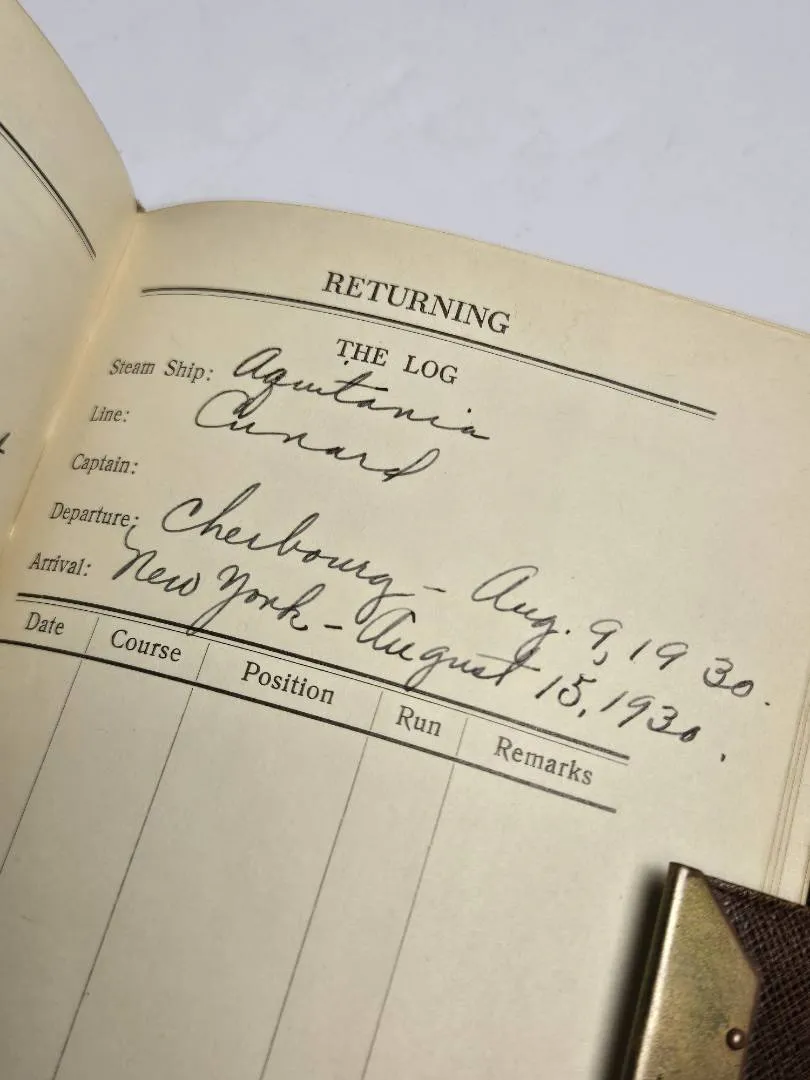 RETURNING
THE LOG
Steam Ship: Aquitania
Line: Cunard
Captain:
Departure: Cherbourg - Aug. 9, 1930.
Arrival: New York - August 15, 1930.
Date Course Position Run Remarks